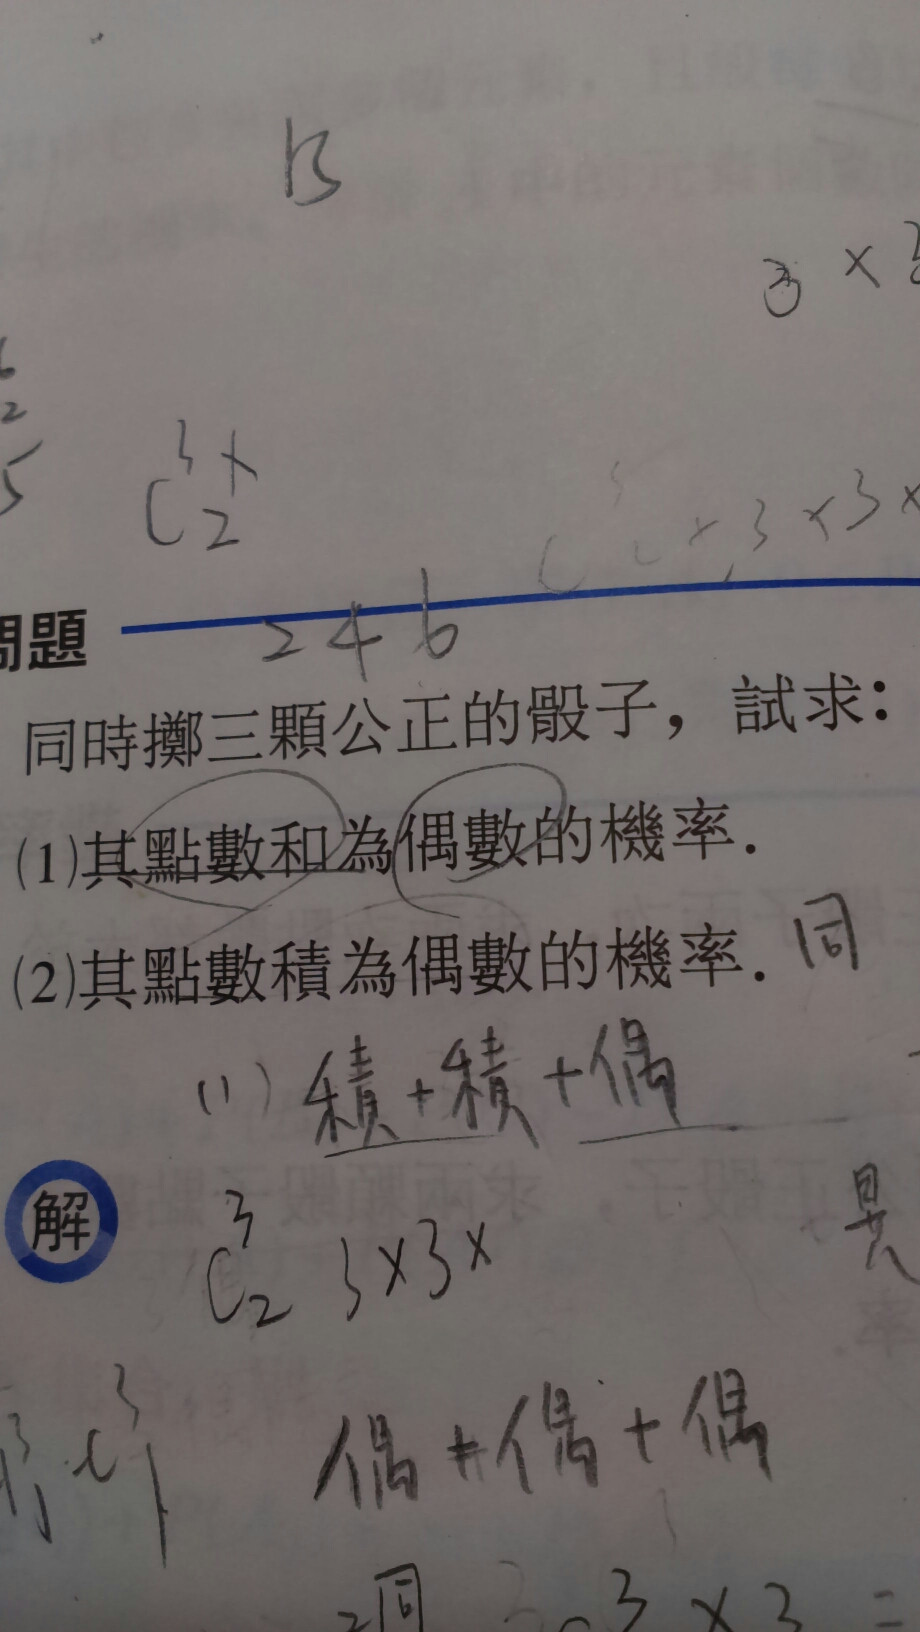 13
3 × 3
6
2
5
C 3 2 ×
C 3 2 × 3 × 3 ×
問題
2 4 6
同時擲三顆公正的骰子，試求：
(1)其點數和為偶數的機率．
(2)其點數積為偶數的機率．同
(1) 積 + 積 + 偶
解
C 3 2 3×3×
異
率．
C 3 1
偶 + 偶 + 偶
2同
3 × 3 =